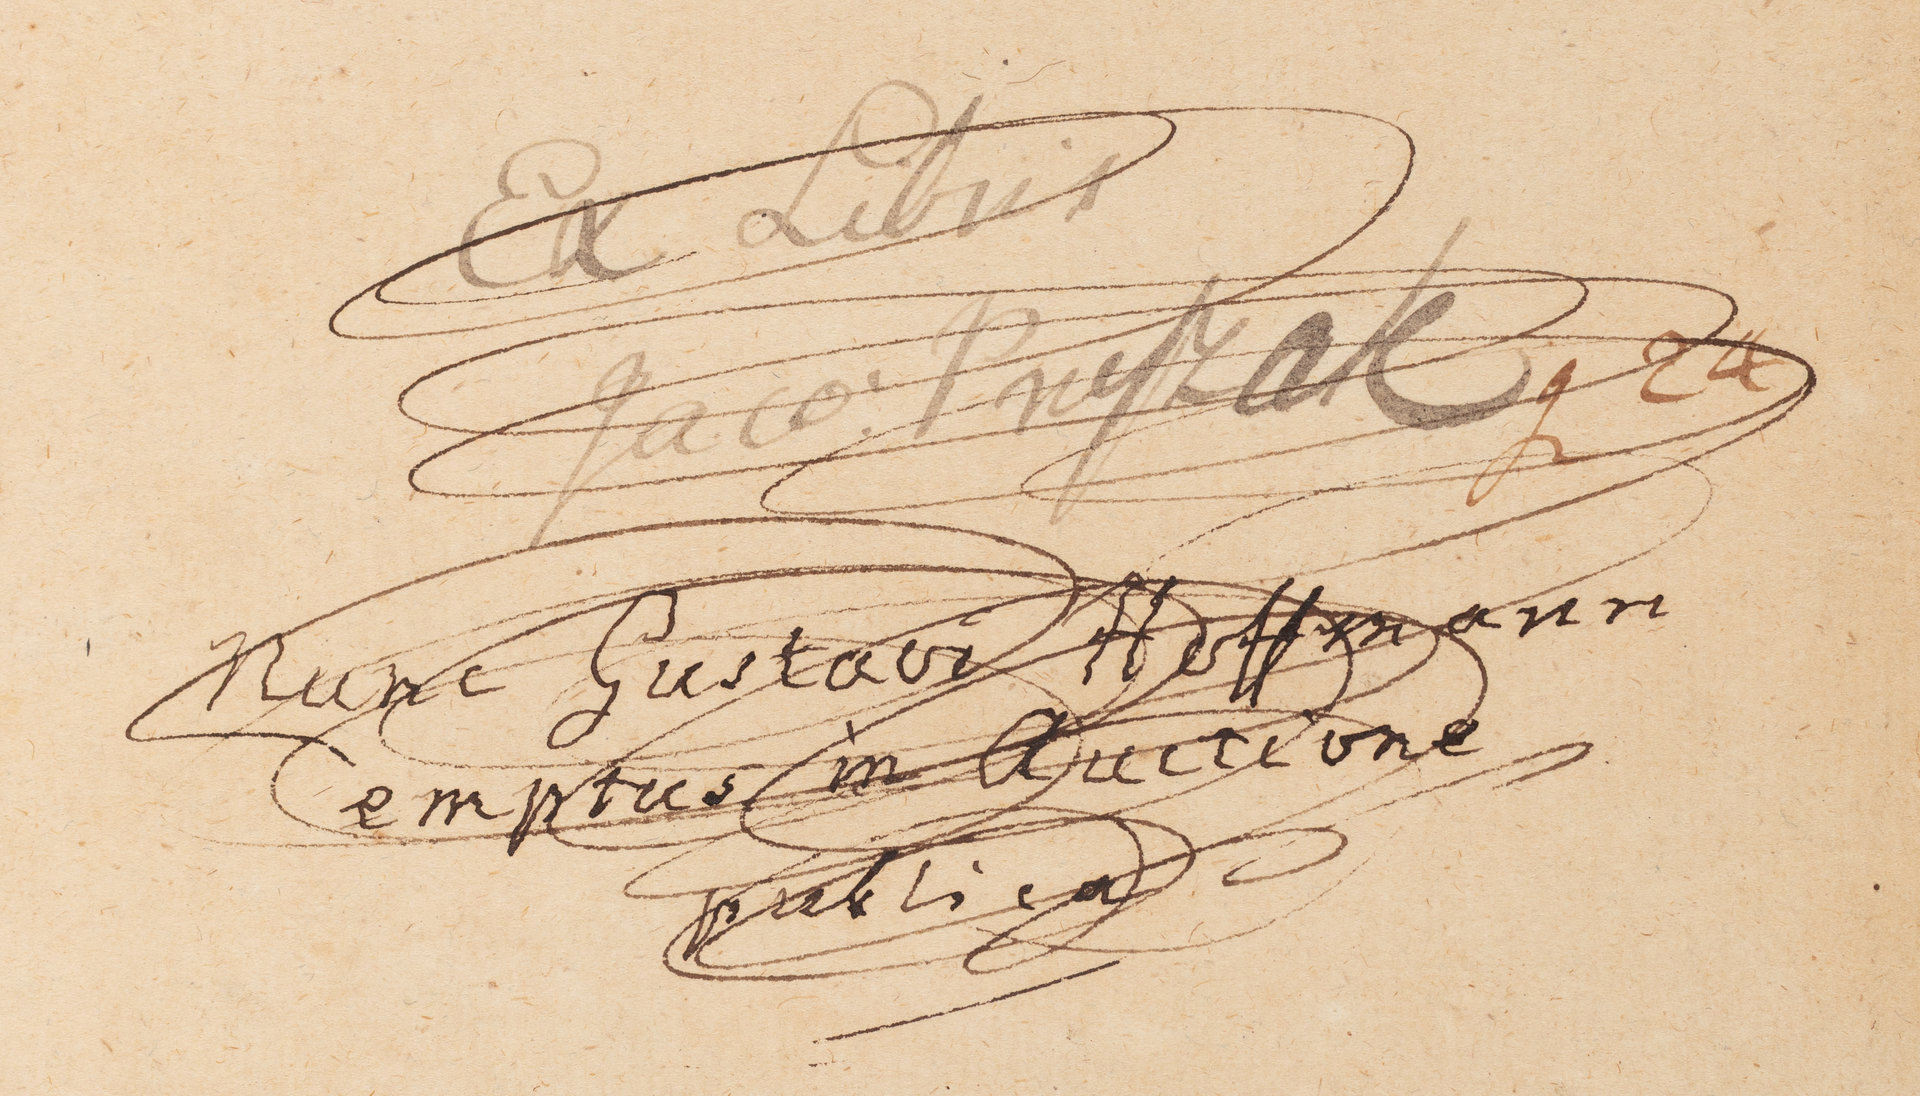 Ex Libris
Jaco:
Nunc Gustavi Hoffmann
emptus in Auctione
publica